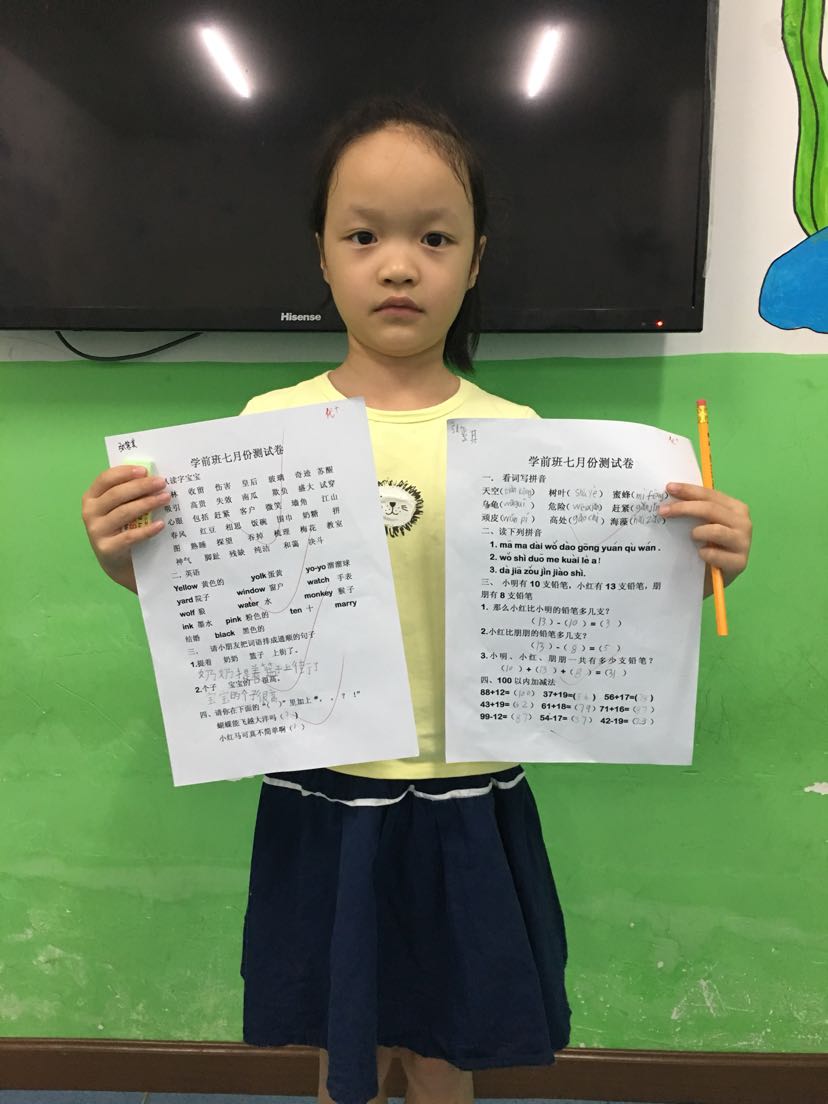 Hisense
优+
学前班七月份测试卷
读字宝宝
林 收留 伤害 皇后 玻璃 奇迹 苏醒
吸引 高贵 失败 南瓜 欺负 盛大 试穿
心脏 包括 赶紧 客户 微笑 墙角 江山
春风 红豆 相思 饭碗 围巾 奶糖 拼
图 熟睡 探望 吞掉 梳理 梅花 教室
神气 脚趾 残缺 纯洁 和蔼 决斗
二. 英语
Yellow 黄色的 yolk 蛋黄 yo-yo 溜溜球
yard 院子 window 窗户 watch 手表
wolf 狼 water 水 monkey 猴子
ink 墨水 pink 粉色的 ten 十 marry
结婚 black 黑色的
三. 请小朋友把词语排成通顺的句子
1.提着 奶奶 篮子 上街了。
奶奶提着篮子上街了
2.个子 宝宝的 很高。
宝宝的个子很高
四、请你在下面的“（ ）”里加上“。，？！”
蝴蝶能飞越大洋吗（ ）
小红马可真不简单啊（ ）
优+
学前班七月份测试卷
一. 看词写拼音
天空（tiān kōng） 树叶（shù yè） 蜜蜂（mì fēng）
乌龟（wū guī） 危险（wēi xiǎn） 赶紧（gǎn jǐn）
顽皮（wán pí） 高处（gāo chù） 海藻（hǎi zǎo）
二、读下列拼音
1. mā ma dài wǒ dào gōng yuán qù wán .
2. wǒ shì duō me kuài lè a !
3. dà jiā zǒu jìn jiào shì.
三、小明有 10 支铅笔，小红有 13 支铅笔，朋
朋有 8 支铅笔
1. 那么小红比小明的铅笔多几支？
（13）-（10）=（3）
2.小红比朋朋的铅笔多几支？
（13）-（8）=（5）
3.小明、小红、朋朋一共有多少支铅笔？
（10）+（13）+（8）=（31）
四、100 以内加减法
88+12=（100） 37+19=（56） 56+17=（73）
43+19=（62） 61+18=（79） 71+16=（87）
99-12=（87） 54-17=（37） 42-19=（23）